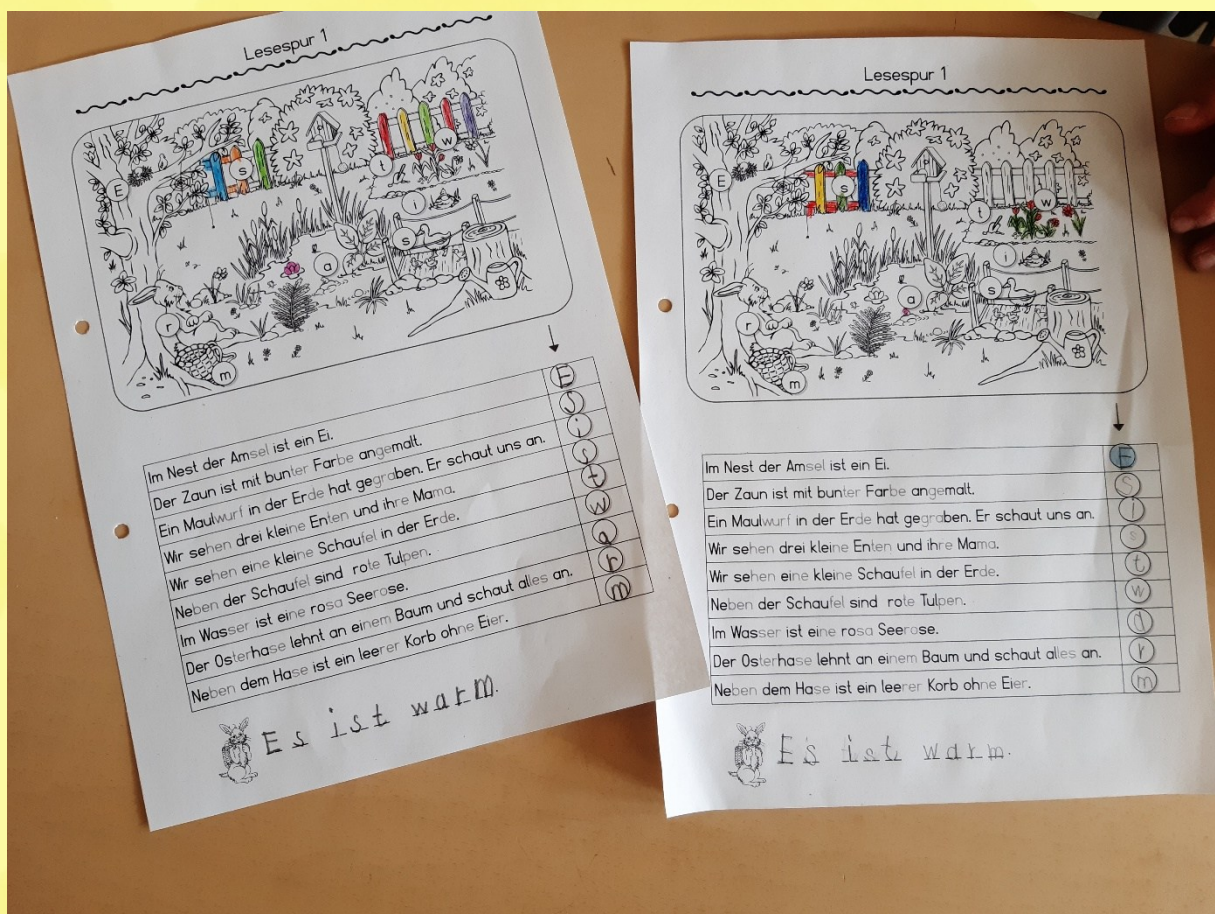 Lesespur 1
E
s
t
w
i
s
a
r
m
Im Nest der Amsel ist ein Ei. E
Der Zaun ist mit bunter Farbe angemalt. S
Ein Maulwurf in der Erde hat gegraben. Er schaut uns an. i
Wir sehen drei kleine Enten und ihre Mama. s
Wir sehen eine kleine Schaufel in der Erde. t
Neben der Schaufel sind rote Tulpen. w
Im Wasser ist eine rosa Seerose. a
Der Osterhase lehnt an einem Baum und schaut alles an. r
Neben dem Hase ist ein leerer Korb ohne Eier. m
Es ist warm.
Lesespur 1
E
s
t
w
i
s
a
r
m
Im Nest der Amsel ist ein Ei. E
Der Zaun ist mit bunter Farbe angemalt. S
Ein Maulwurf in der Erde hat gegraben. Er schaut uns an. i
Wir sehen drei kleine Enten und ihre Mama. s
Wir sehen eine kleine Schaufel in der Erde. t
Neben der Schaufel sind rote Tulpen. w
Im Wasser ist eine rosa Seerose. a
Der Osterhase lehnt an einem Baum und schaut alles an. r
Neben dem Hase ist ein leerer Korb ohne Eier. m
Es ist warm.